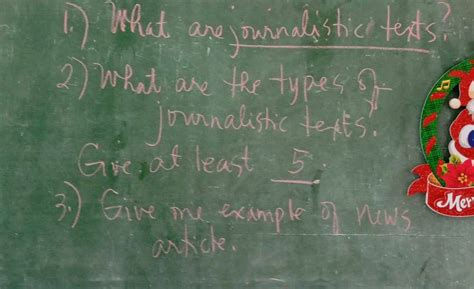 1.) What are journalistic texts?
2.) What are the types of
journalistic texts.
Give at least 5.
3.) Give me example of news
article.
Mer